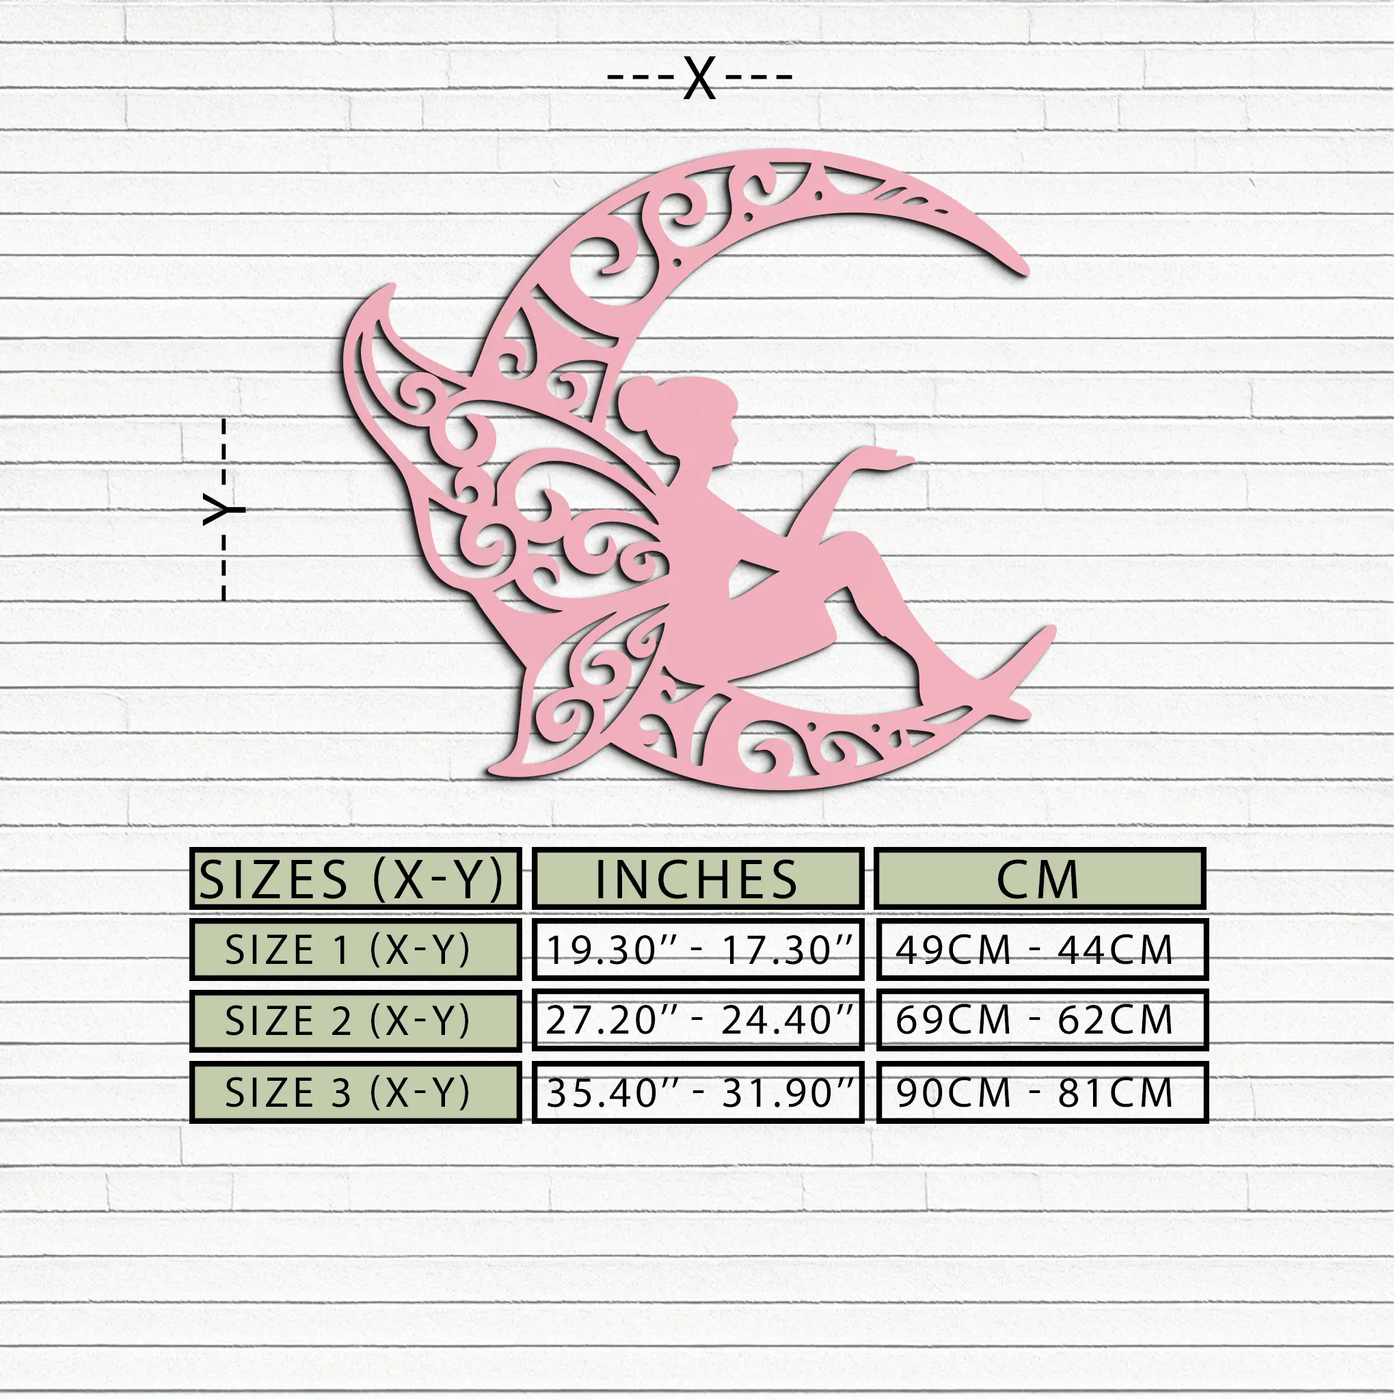 ---X---
---Y---
SIZES (X-Y) INCHES CM
SIZE 1 (X-Y) 19.30’’ - 17.30’’ 49CM - 44CM
SIZE 2 (X-Y) 27.20’’ - 24.40’’ 69CM - 62CM
SIZE 3 (X-Y) 35.40’’ - 31.90’’ 90CM - 81CM